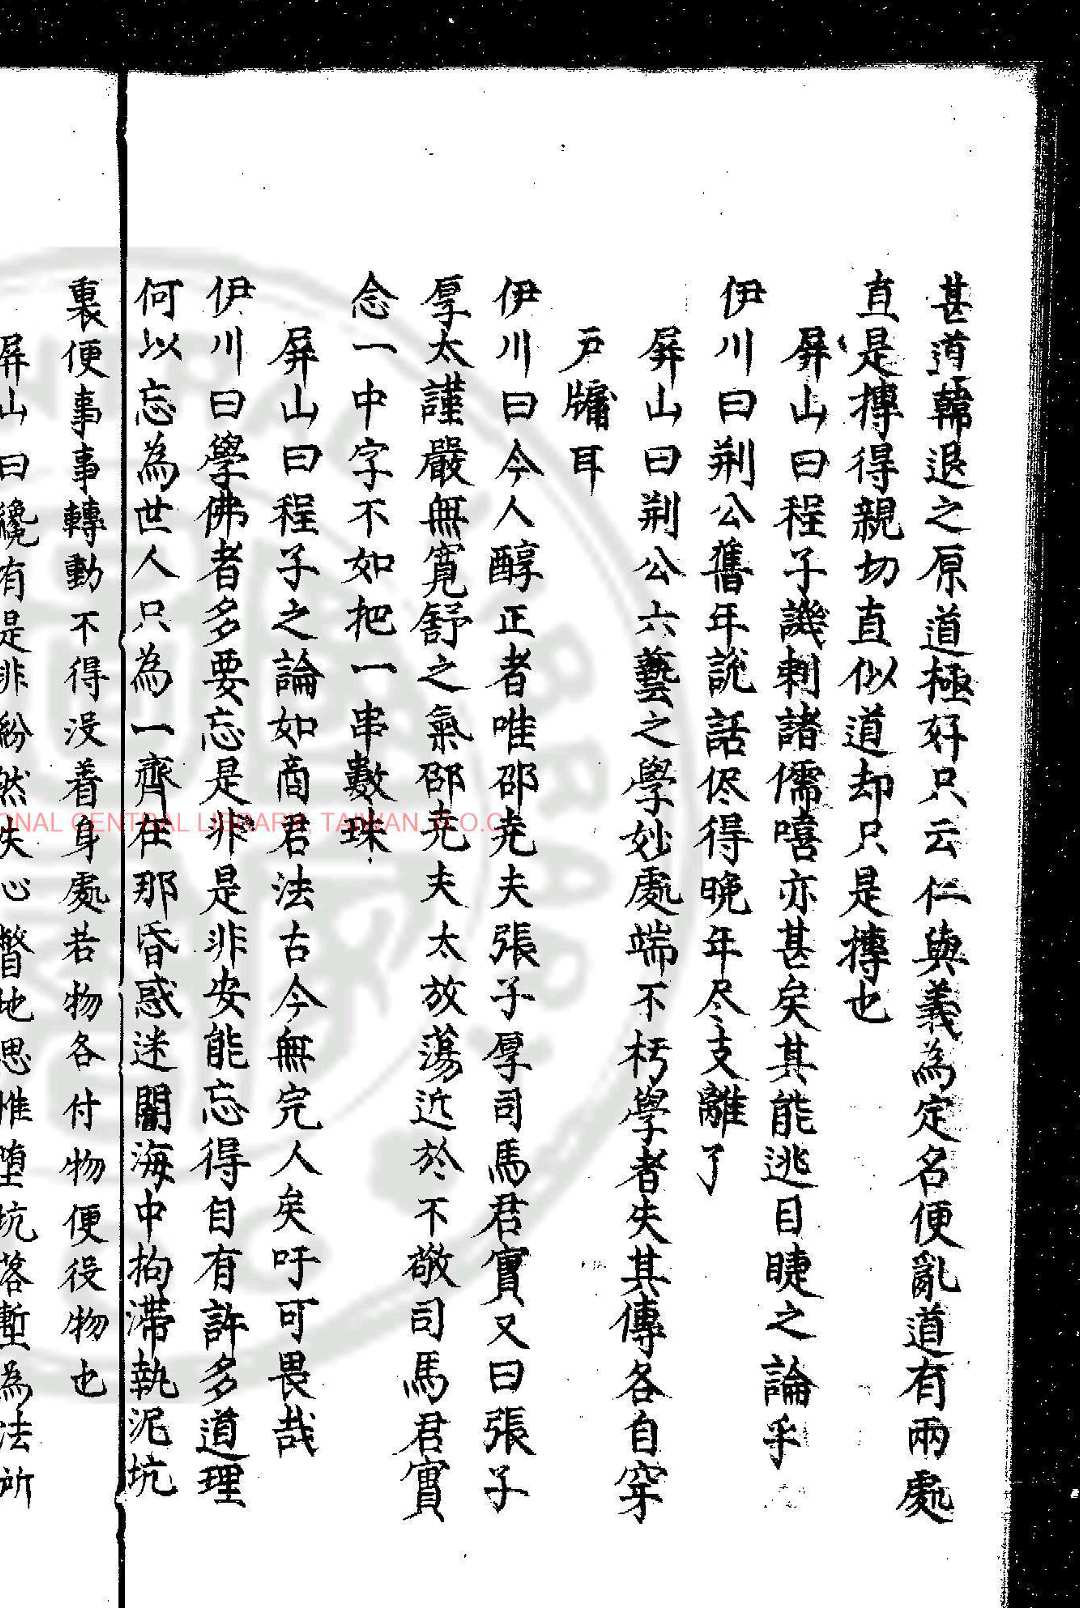 甚道韓退之原道極好只云仁與義為定名便亂道有兩處
直是摶得親切直似道却只是摶也
屏山曰程子譏刺諸儒嘻亦甚矣其能逃目睫之論乎
伊川曰荆公舊年說話侭得晚年尽支離了
屏山曰荆公六藝之學妙處端不朽學者失其傳各自穿
戶牖耳
伊川曰今人醇正者唯邵尭夫張子厚司馬君實又曰張子
厚太謹嚴無寛舒之氣邵尭夫太放蕩近於不敬司馬君實
念一中字不如把一串數珠
屏山曰程子之論如商君法古今無完人矣吁可畏哉
伊川曰學佛者多要忘是非是非安能忘得自有許多道理
何以忘為世人只為一齊在那昏惑迷闇海中拘滯執泥坑
裏便事事轉動不得没着身處若物各付物便役物也
屏山曰纔有是非紛然失心瞥地思惟堕坑落塹為法所
NATIONAL CENTRAL LIBRARY, TAIWAN, R.O.C.